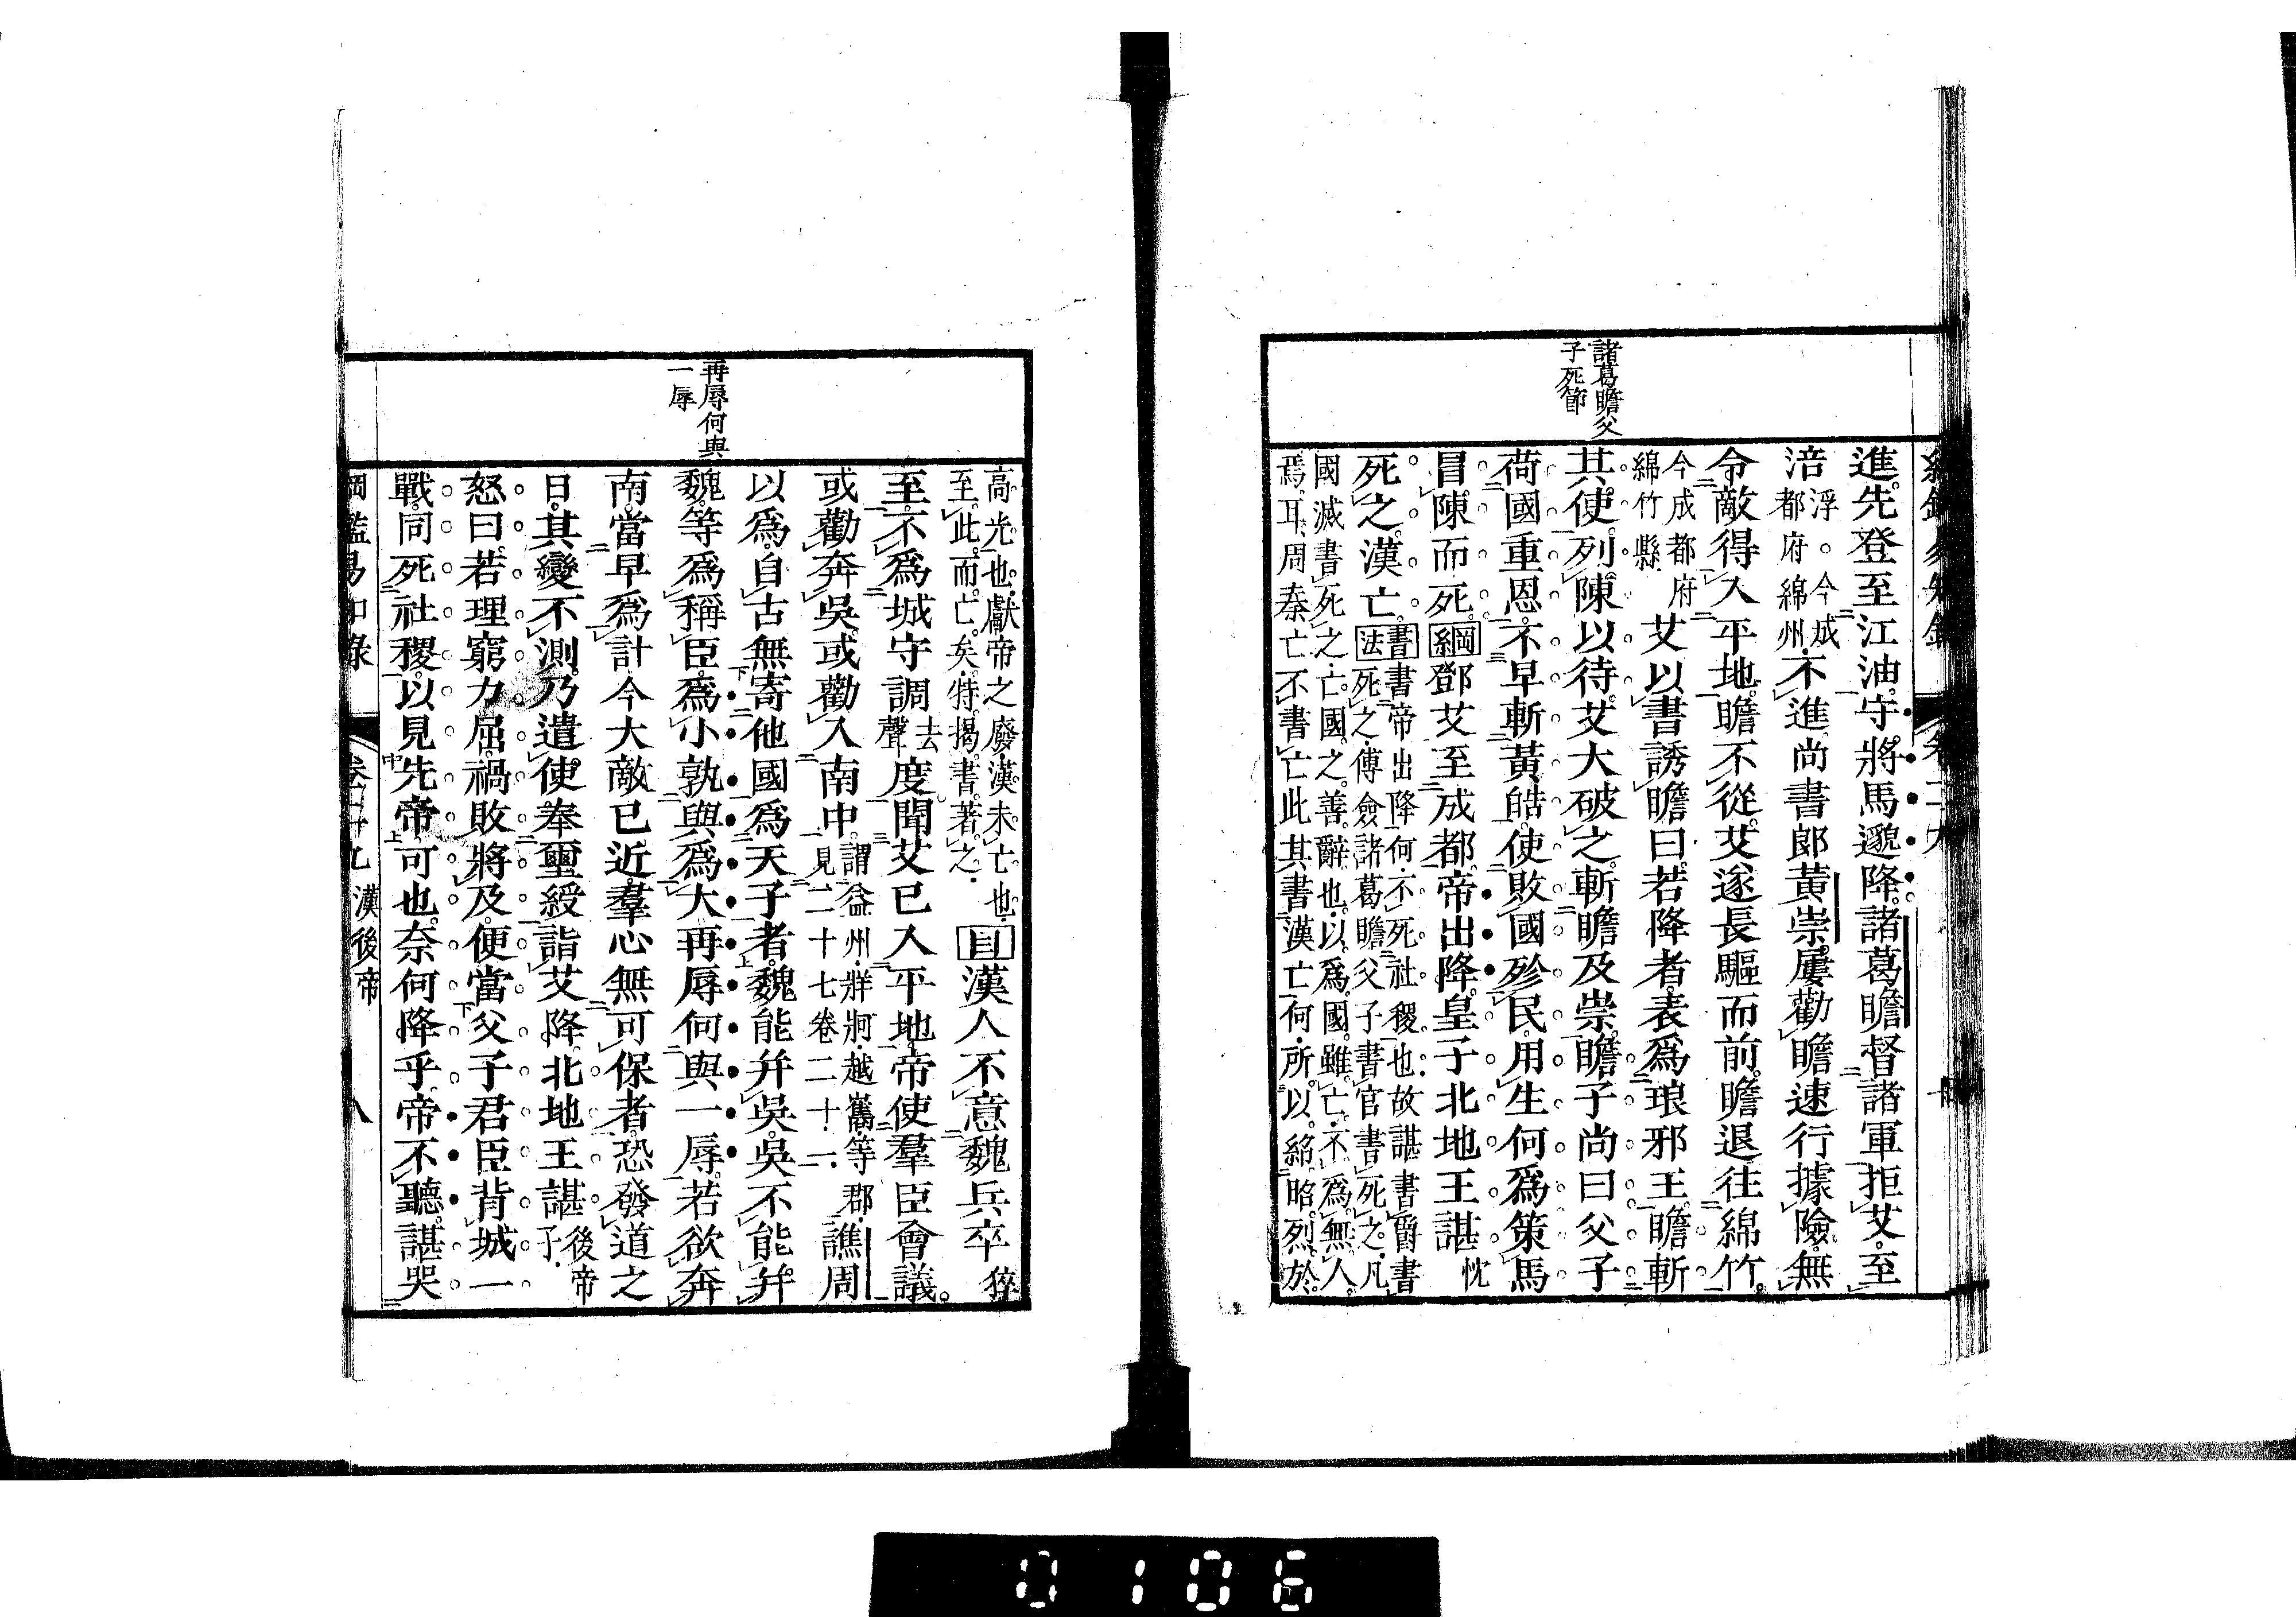 諸葛瞻父
子死節
進先登至江油守將馬邈降諸葛瞻督諸軍拒艾至
涪浮。今成都府綿州不進尚書郎黃崇屢勸瞻速行據險無
令敵得入平地瞻不從艾遂長驅而前瞻退往綿竹
今成都府綿竹縣艾以書誘瞻曰若降者表爲琅邪王瞻斬
其使列陳以待艾大破之斬瞻及崇瞻子尚曰父子
荷國重恩不早斬黃皓使敗國殄民用生何爲策馬
冒陳而死綱鄧艾至成都帝出降皇子北地王諶忱
死之漢亡書法書帝出降何不死社稷也故諶書爵書
死之傅僉諸葛瞻父子書官書死之凡
國滅書死之亡國之善辭也以爲國雖亡不爲無人
焉耳周秦亡不書亡此其書漢亡何所以紹昭烈於
再辱何與
一辱
高光也獻帝之廢漢未亡也
至此而亡矣特揭書著之
目漢人不意魏兵卒猝
至不爲城守調去聲度聞艾已入平地帝使羣臣會議
或勸奔吳或勸入南中謂益州牂牁越巂等郡見二十七卷二十一譙周
以爲自古無寄他國爲天子者魏能幷吳吳不能幷
魏等爲稱臣爲小孰與爲大再辱何與一辱若欲奔
南當早爲計今大敵已近羣心無可保者恐發道之
日其變不測乃遣使奉璽綬詣艾降北地王諶後帝子
怒曰若理窮力屈禍敗將及便當父子君臣背城一
戰同死社稷以見先帝可也奈何降乎帝不聽諶哭
綱鑑易知錄 卷二十九 漢後帝 八